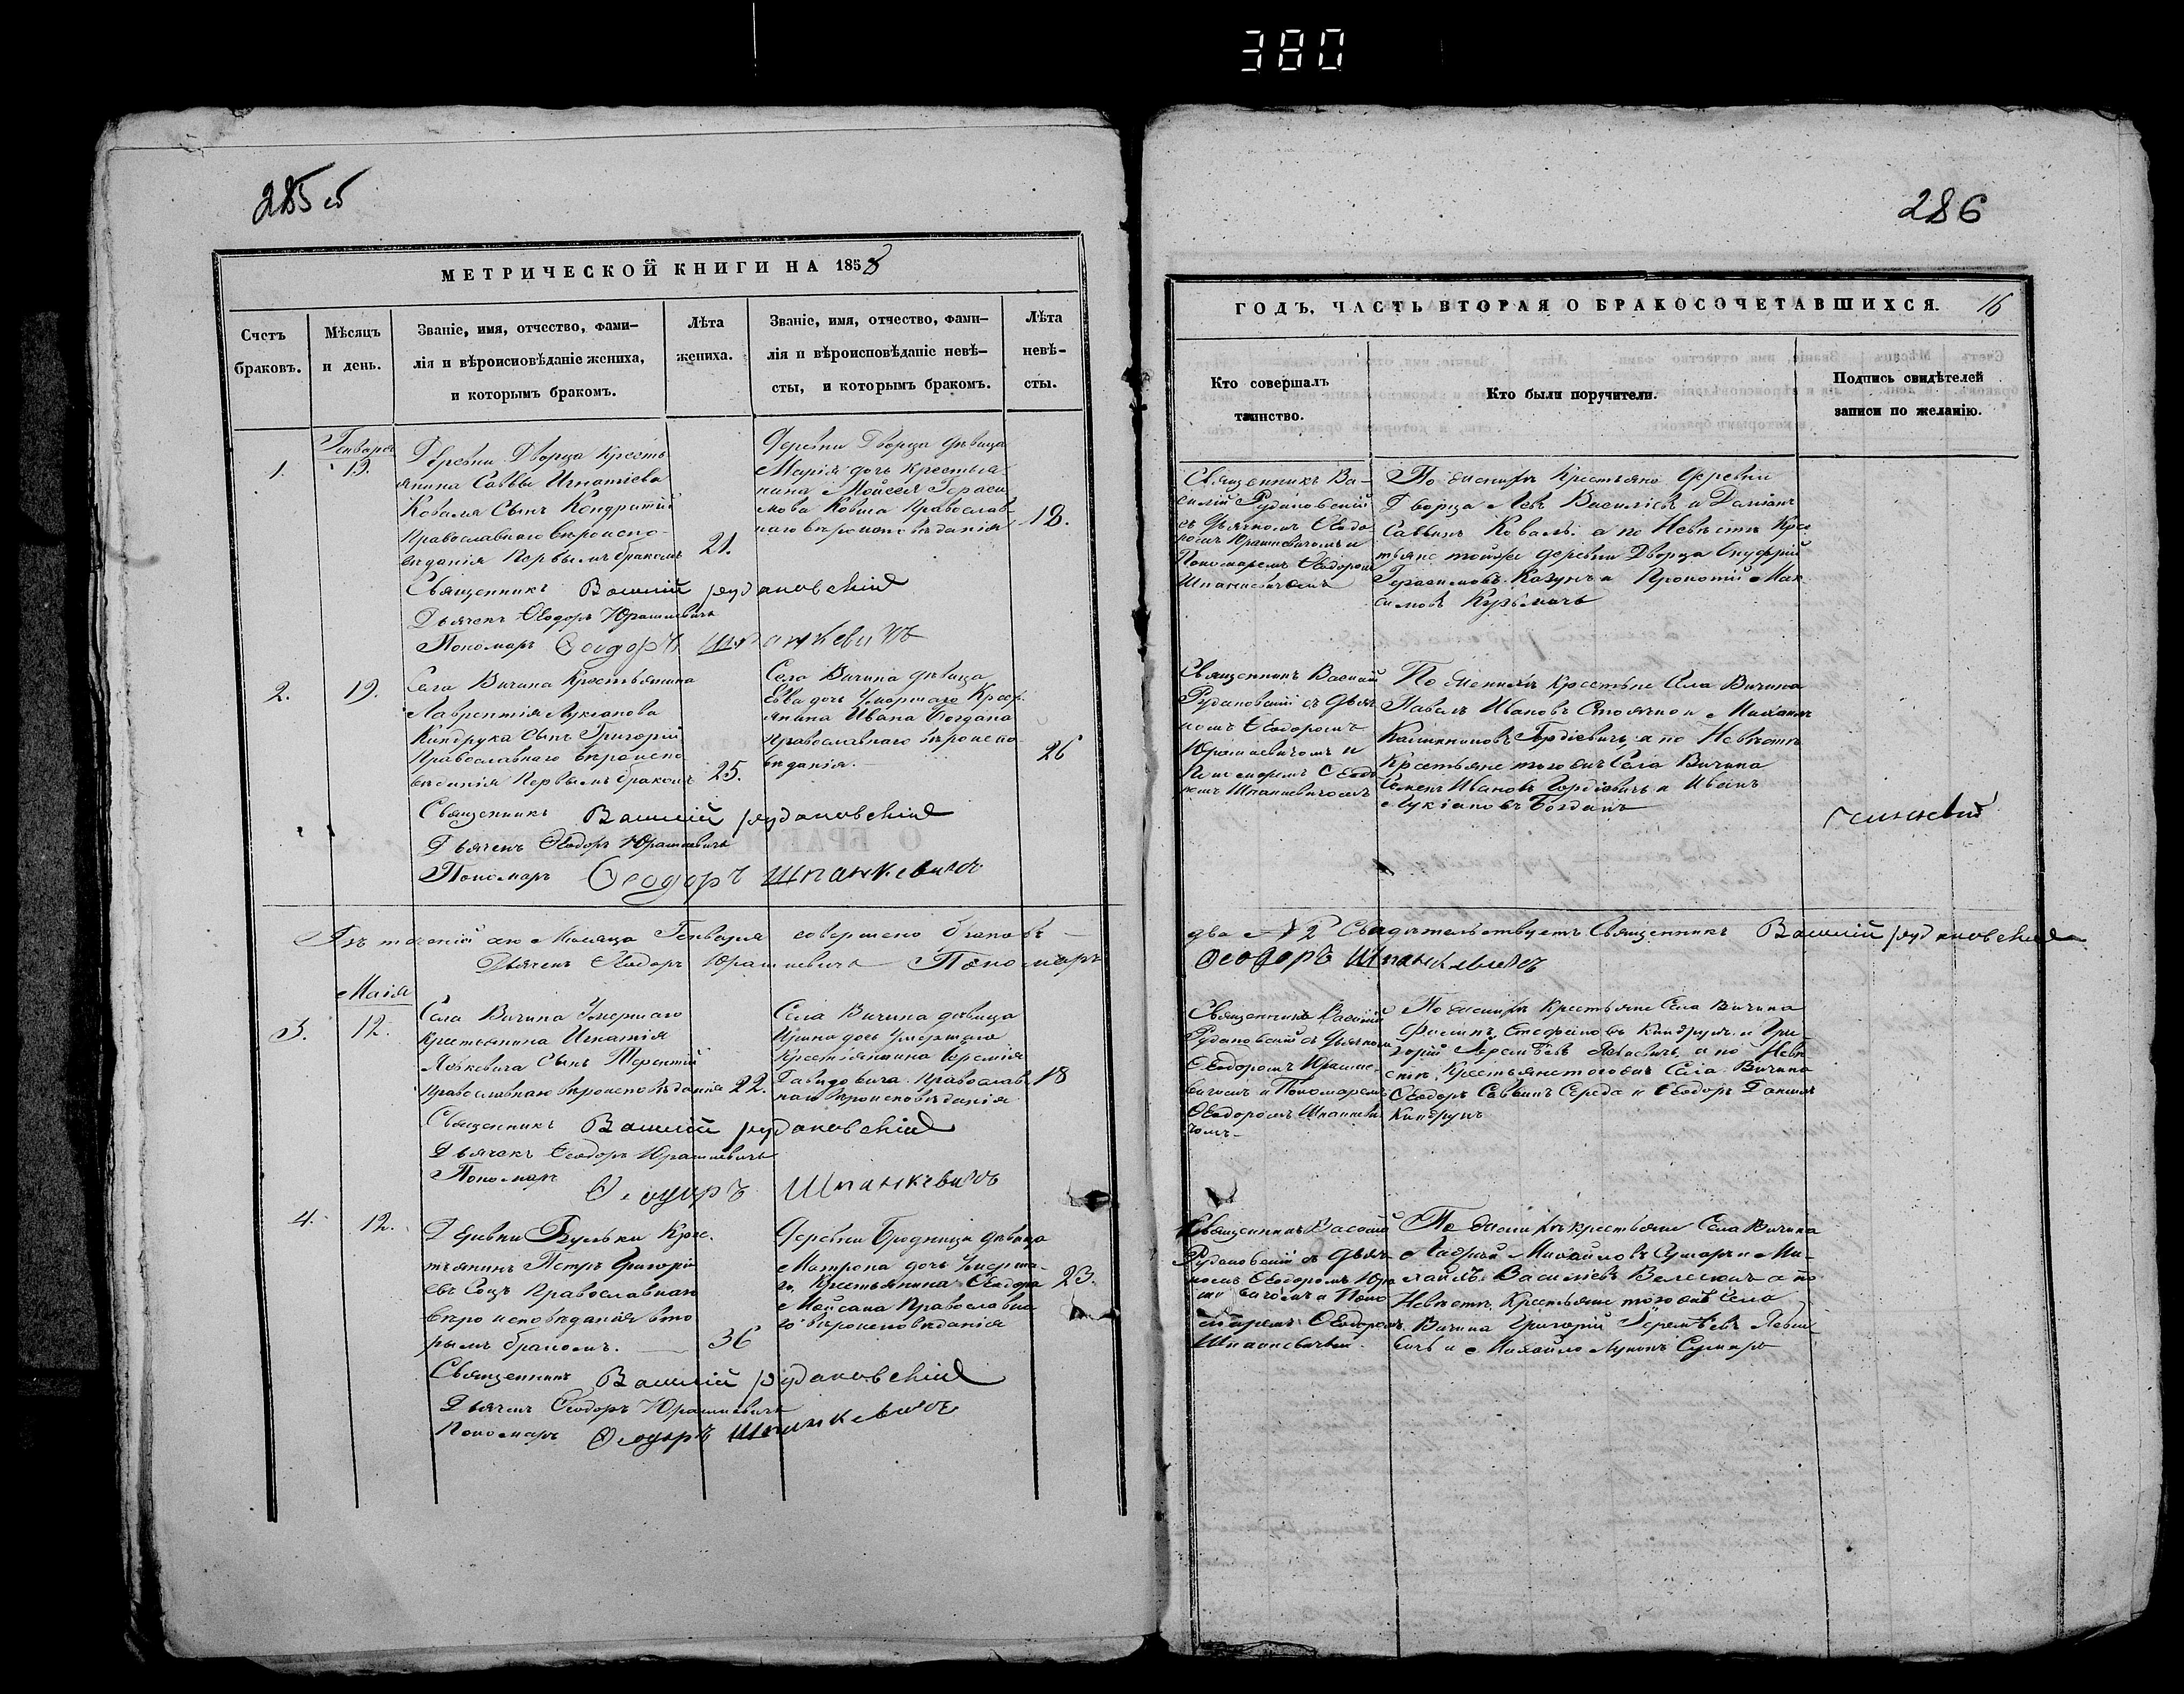 380
285 об
МЕТРИЧЕСКОЙ КНИГИ НА 1858
Счетъ браковъ.
Мѣсяцъ и день.
Званіе, имя, отчество, фами-
лія и вѣроисповѣданіе жениха,
и которымъ бракомъ.
Лѣта жениха.
Званіе, имя, отчество, фами-
лія и вѣроисповѣданіе невѣ-
сты, и которымъ бракомъ.
Лѣта невѣ-
сты.
1.
Генваря
19.
Деревни Дворца Кресть
янина Саввы Игнатіева
Коваля Сынъ Кондратій
Православнаго вѣроиспо-
вѣданія Первымъ бракомъ
21.
Деревни Дворца дѣвица
Марія дочь крестья
нина Мойсея Гераси
мова Ковша Православ-
наго вѣроисповѣданія
18.
Священникъ Василій Рудановскій
Дьячекъ Ѳеодоръ Юрашкевичъ
Пономарь Ѳеодоръ Шпанкевичъ
2.
19.
Села Вичина Крестьянина
Лаврентія Лукіанова
Киндрука Сынъ Григорій
Православнаго вѣроиспо
вѣданія Первымъ бракомъ
25.
Села Вичина дѣвица
Евва дочь Умершаго Крест
янина Ивана Богдана
Православнаго вѣроиспо
вѣданія.
26
Священникъ Василій Рудановскій
Дьячекъ Ѳеодоръ Юрашкевичъ
Пономарь Ѳеодоръ Шпанкевичъ
Въ теченіи сего Мѣсяца Генваря совершено браковъ
Дьячекъ Ѳеодоръ Юрашкевичъ Пономарь
Маія
3.
12.
Села Вичина Умершаго
Крестьянина Игнатія
Левковича Сынъ Терентій
Православнаго вѣроисповѣданія
22.
Села Вичина дѣвица
Ирина дочь Умершаго
Крестьянина Еремія
Давидовича Православ
наго вѣроисповѣданія
18
Священникъ Василій Рудановскій
Дьячекъ Ѳеодоръ Юрашкевичъ
Пономарь Ѳеодоръ Шпанкевичъ
4.
12.
Деревни Крес
тьянинъ Петръ Григорі
евъ Православнаго
вѣроисповѣданія вто
рымъ бракомъ.
36
Деревни Бродницы дѣвица
Матрона дочь Умерша-
го Крестьянина Ѳеодора
Мойсана Православна
го вѣроисповѣданія
23.
Священникъ Василій Рудановскій
Дьячекъ Ѳеодоръ Юрашкевичъ
Пономарь Ѳеодоръ Шпанкевичъ
286
ГОДЪ, ЧАСТЬ ВТОРАЯ О БРАКОСОЧЕТАВШИХСЯ. 16
Кто совершалъ
таинство.
Кто были поручители.
Подпись свидѣтелей
записи по желанію.
Священникъ Ва-
силій Рудановскій
съ Дьячкомъ Ѳеодо
ромъ Юрашкевичемъ и
Пономаремъ Ѳеодоромъ
Шпанкевичемъ
По женихѣ Крестьяне Деревни
Дворца Левъ Василіевъ и Даміанъ
Саввинъ Коваль: а по Невѣстѣ Крес
тьяне тойже деревни Дворца Онуфрій
Герасимовъ и Прокопій Мак
симовъ Кузьмичъ
Священникъ Василій
Рудановскій съ Дьяч
комъ Ѳеодоромъ
Юрашкевичемъ и
Пономаремъ Ѳеодо
ромъ Шпанкевичемъ
По женихѣ Крестьяне Села Вичина
Павелъ Ивановъ и Михаилъ
Калинниковъ Гордіевичъ, а по Невѣстѣ
Крестьяне тогожъ Села Вичина
Семенъ Ивановъ Гордіевичъ и Иванъ
Лукіановъ Богданъ
два № 2 Свидѣтельствуетъ Священникъ Василій Рудановскій
Ѳеодоръ Шпанкевичъ
Священникъ Василій
Рудановскій съ Дьячкомъ
Ѳеодоромъ Юрашке-
вичемъ и Пономаремъ
Ѳеодоромъ Шпанкеви
чемъ
По женихѣ Крестьяне Села Вичина
Стефановъ Киндрукъ и Гри
горій Терентіевъ а по Невѣ
стѣ Крестьяне тогожъ Села Вичина
Ѳеодоръ Саввинъ Середа и Ѳеодоръ
Киндрукъ
Священникъ Василій
Рудановскій съ Дьяч
комъ Ѳеодоромъ Юра
шкевичемъ и Поно
маремъ Ѳеодоромъ
Шпанкевичемъ
По женихѣ крестьяне Села Вичина
Михайловъ Сумаръ и Ми-
хаилъ Василіевъ а по
Невѣстѣ Крестьяне тогожъ Села
Вичина Григорій Терентіевъ
и Михайло Сумаръ